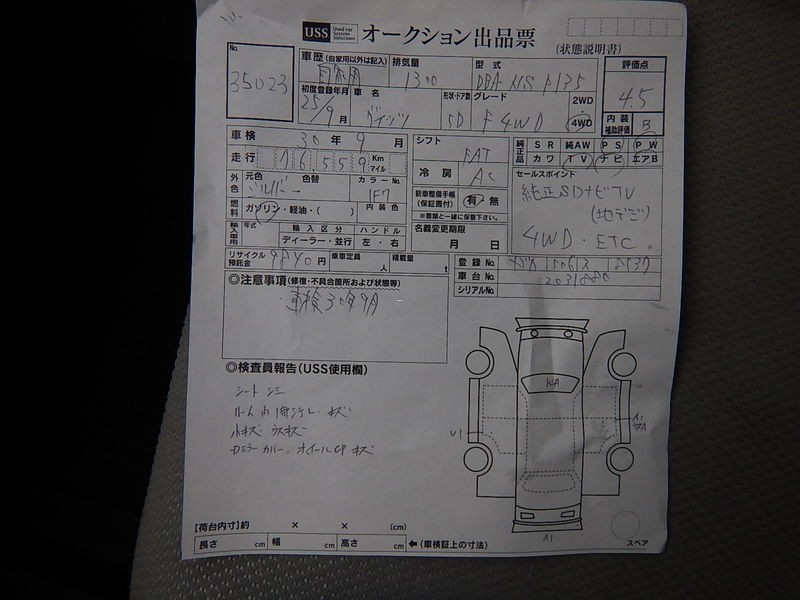 USS Used car System Solutions オークション出品票
(状態説明書)
No. 35023
車歴 (自家用以外は記入) 自家用
排気量 1300
型式 DBA
評価点 4.5
初度登録年月 25/9月
車名 ヴィッツ
形状・ドア数 5D
グレード F 4WD
2WD
4WD
内装補助評価 B
車検 30年9月
シフト FAT
純正品 SR 純AW PS PW
カワ TV ナビ エアB
走行 76,559 Km マイル
冷房 AC
セールスポイント
純正SDナビTV
(地デジ)
4WD・ETC
外色 元色 色替 カラーNo.
シルバー 1F7
新車整備手帳 (保証書付) 有・無
※書類と一緒に保管下さい。
燃料 ガソリン・軽油・( ) 内装色
輸入車用 年式 輸入区分 ハンドル
ディーラー・並行 左・右
名義変更期限
月 日
リサイクル預託金 9840円 乗車定員 人 積載量 t
登録No.
車台No. 2031880
シリアルNo.
◎注意事項(修復・不具合箇所および状態等)
車検30年9月
◎検査員報告(USS使用欄)
シート シミ
ルーム内 1部汚レ キズ
小キズ ウスキズ
ドミラーカバー、オイールCP キズ
U1
A1
A1
スペア
【荷台内寸】約 × × (cm)
長さ cm 幅 cm 高さ cm ←(車検証上の寸法)